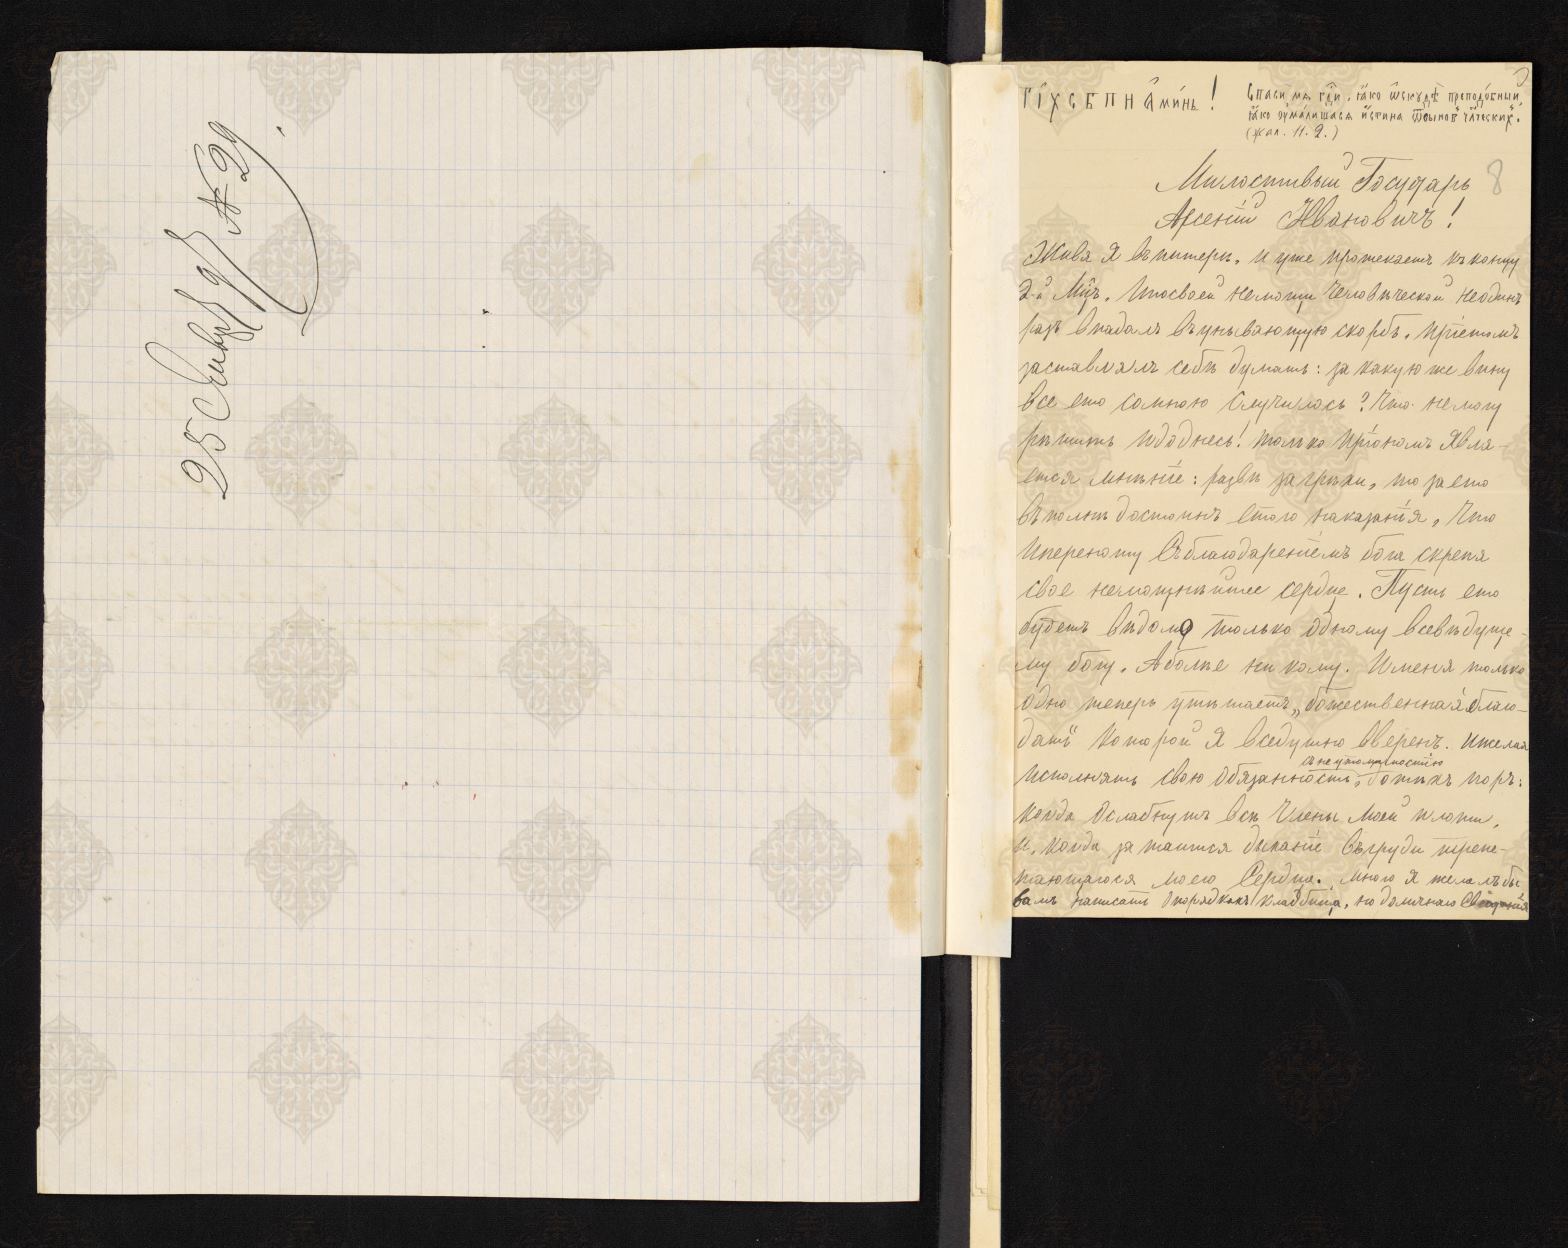 25 Янв 97 № 29.
ГІ҃ХСБПНА́МИ́НЬ!
Спаси мѧ гдⷭ҇и, ꙗ҆́ко ѡ҆скꙋдѣ̀ преподо́бный,
ꙗ҆́ко ᲂу҆ма́лишасѧ и҆́стина ѿ сынѡ́въ чл҃ческихъ.
(ѱал. 11. 2.)
8
Милостивый Государь
Арсеній Ивановичъ!
Живя я въ питерѣ, и уже протекаетъ къ концу
2-й Мц҃ъ. И по своей немощи человѣческой неодинъ
разъ впадалъ въ унывающую скорбь. При етомъ
заставлялъ себѣ думать: за какую же вину
все ето со мною случилось? Что не могу
рѣшить и до днесь! только при ономъ явля-
ется мнѣніе: развѣ за грѣхи, то за ето
въ полнѣ достоинъ етого наказанія, Что
и переношу съ благодареніемъ бога скрепя
свое немощнѣйшее сердце. Пусть ето
будетъ вѣдомо только одному всевѣдуще-
му богу. А болѣе ни кому. И меня только
одно теперь утѣшаетъ, „божественная благо-
дать“ которой я вседушно вверенъ. И желая
съ неутомимостію
исполнять свою обязанность, до тѣхъ поръ:
когда ослабнутъ всѣ члены моей плоти,
и, когда затаится дыханіе въ груди трепе-
тающагося моего сердца. много я желалъ бы
вамъ написать о порядкахъ кладбища, но должнаго